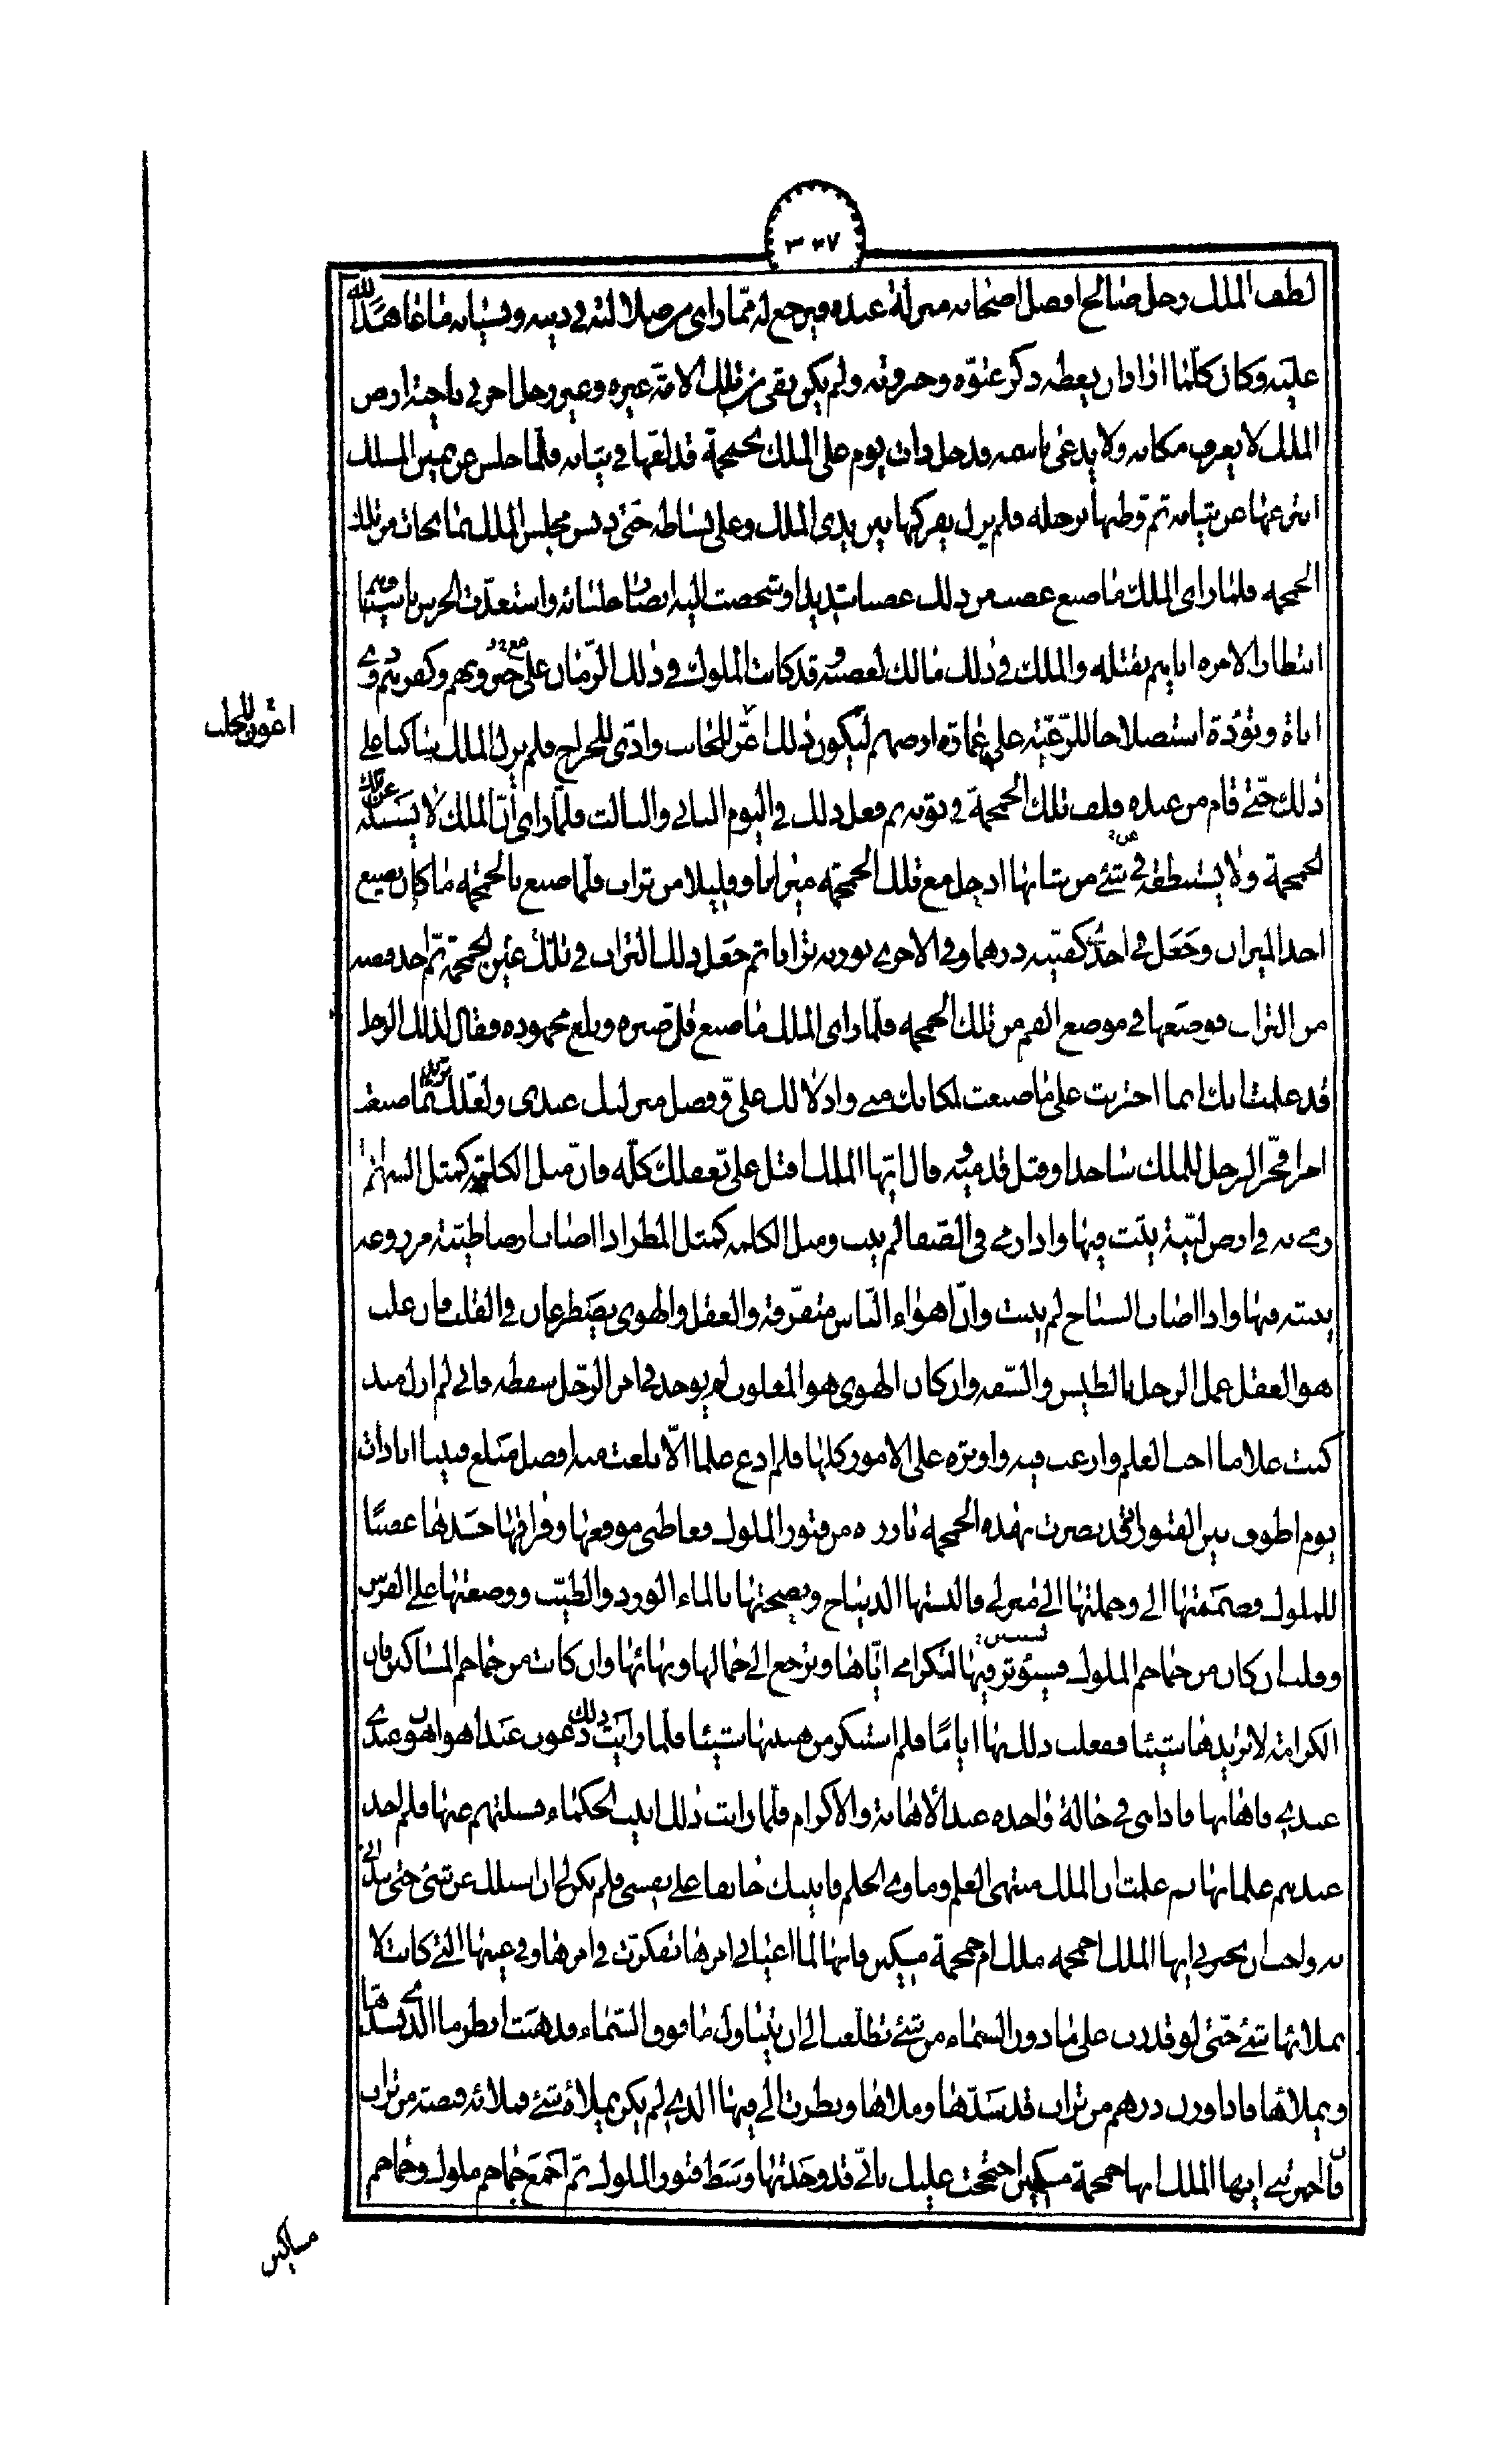 ٣٣٧
لطف الملك رجل صالح افضل اصحابه منزلة عنده فيرجع له مما راى من ضلالته في دينه ونسيانه ما عاهد الله
عليه وكان كلما اراد ان يعظه ذكر عتوّه وجبروته ولم يكن بقى من تلك الامّة غيره وغير رجل اخر في ناحية ارض
الملك لا يعرف مكانه ولا يدعى باسمه فدخل ذات يوم على الملك بجمجمة قد لفّها في ثيابه فلمّا جلس عن يمين الملك
انتزعها عن ثيابه ثم وطئها برجله فلم يزل يفركها بين يدى الملك وعلى بساطه حتى دنس مجلس الملك بما تحات من تلك
الجمجمه فلمّا راى الملك ما صنع غضب من ذلك غضبا شديدا وشخصت اليه ابصار جلسائه واستعدّت الحرس باسيافهم
انتظارا لامره اياهم بقتله والملك في ذلك مالك لغضبه وقد كانت الملوك في ذلك الزّمان على جبروتهم وكفرهم ذوى
اناة وتؤدة استصلاحا للرّعيّة على عمارة ارضهم ليكون ذلك اعزّ للجانب وادّى للخراج فلم يزل الملك ساكتا على
اعون للجلب
ذلك حتّى قام من عنده فلف تلك الجمجمة في ثوبه ثم فعل ذلك في اليوم الثانى والثالث فلمّا راى انّ الملك لا يسئله عن تلك
الجمجمة ولا يستنطقه في شئ من شانها ادخل مع تلك الجمجمه ميزانا وقليلا من تراب فلمّا صنع بالجمجمه ما كان يصنع
اخذ الميزان وجعل في احدى كفتيه درهما وفي الاخرى بوزنه ترابا ثم جعل ذلك التراب في تلك عين الجمجمة ثم اخذ قبضه
من التراب فوضعها في موضع الفم من تلك الجمجمه فلمّا راى الملك ما صنع قلّ صبره وبلغ مجهوده فقال لذلك الرجل
قد علمت انك انما اجترات على ما صنعت لمكانك منى وادلالك علىّ وفضل منزلتك عندى ولعلّك تريد بما صنعت
امرا فخرّ الرجل للملك ساجدا وقبل قدميه وقال ايّها الملك اقبل علىّ بعقلك كلّه فان مثل الكلمة كمثل السهم اذا
رمى به في ارض ليّنة يثبت فيها واذا رمى في الصّفا لم يثبت ومثل الكلمه كمثل المطر اذا اصاب ارضا طيّبة مزروعه
ينبت فيها واذا اصاب السباخ لم ينبت وانّ اهواء النّاس متفرّقة والعقل والهوى يصطرعان في القلب فان غلب
هوا العقل عمل الرجل بالطيش والسّفه وان كان الهوى هو المغلوب لم يوجد في امر الرّجل سقطه فانى لم ازل منذ
كنت غلاما احب العلم وارغب فيه واوثره على الامور كلها فلم ادع علما الّا بلغت منه افضل مبلغ فبينا انا ذات
يوم اطوف بين القبور اذ قد بصرت بهذه الجمجمه بارزه من قبور الملوك فغاظنى موقعها وفراقها جسدها غضبًا
للملوك فضممتها الى وحملتها الى منزلى فالبستها الديباج ونضحتها بالماء الورد والطيّب ووضعتها على الفرش
وقلت ان كان من جماجم الملوك فسيؤثر فيها اكرامى ايّاها وترجع الى جمالها وبهائها وان كانت من جماجم المساكين فان
الكرامة لا تزيدها شيئا ففعلت ذلك بها ايامًا فلم استنكر من هيئتها شيئا فلما رايت ذلك دعوت عبدا هو اهون عبيدى
عندى فاهانها فاذا هى في حالة واحده عند الاهانة والاكرام فلمّا رايت ذلك اتيت الحكماء فسئلتهم عنها فلم اجد
عندهم علما بها ثم علمت ان الملك منتهى العلم وماوى الحلم فاتيتك خائفا على نفسى فلم يكن لى ان اسئلك عن شئ حتى تبدأنى
به واحب ان تخبرنى ايها الملك اجمجمه ملك ام جمجمة مسكين فانها لما اعيانى امرها تفكرت في امرها وفي عينها التى كانت لا
يملأها شئ حتّى لو قدرت على ما دون السماء من شئ تطلعت الى ان تتناول ما فوق السّماء فذهبت انظر ما الذى يسدّها
ويملأها فاذا وزن درهم من تراب قد سدّها وملاها ونظرت الى فيها الذى لم يكن يملأه شئ فملأته قبضة من تراب
فان اخبرتنى ايها الملك انها جمجمة مسكين احتججت عليك بانّى قد وجدتها وسط قبور الملوك ثم اجمع جماجم ملوك وجماجم
مساكين